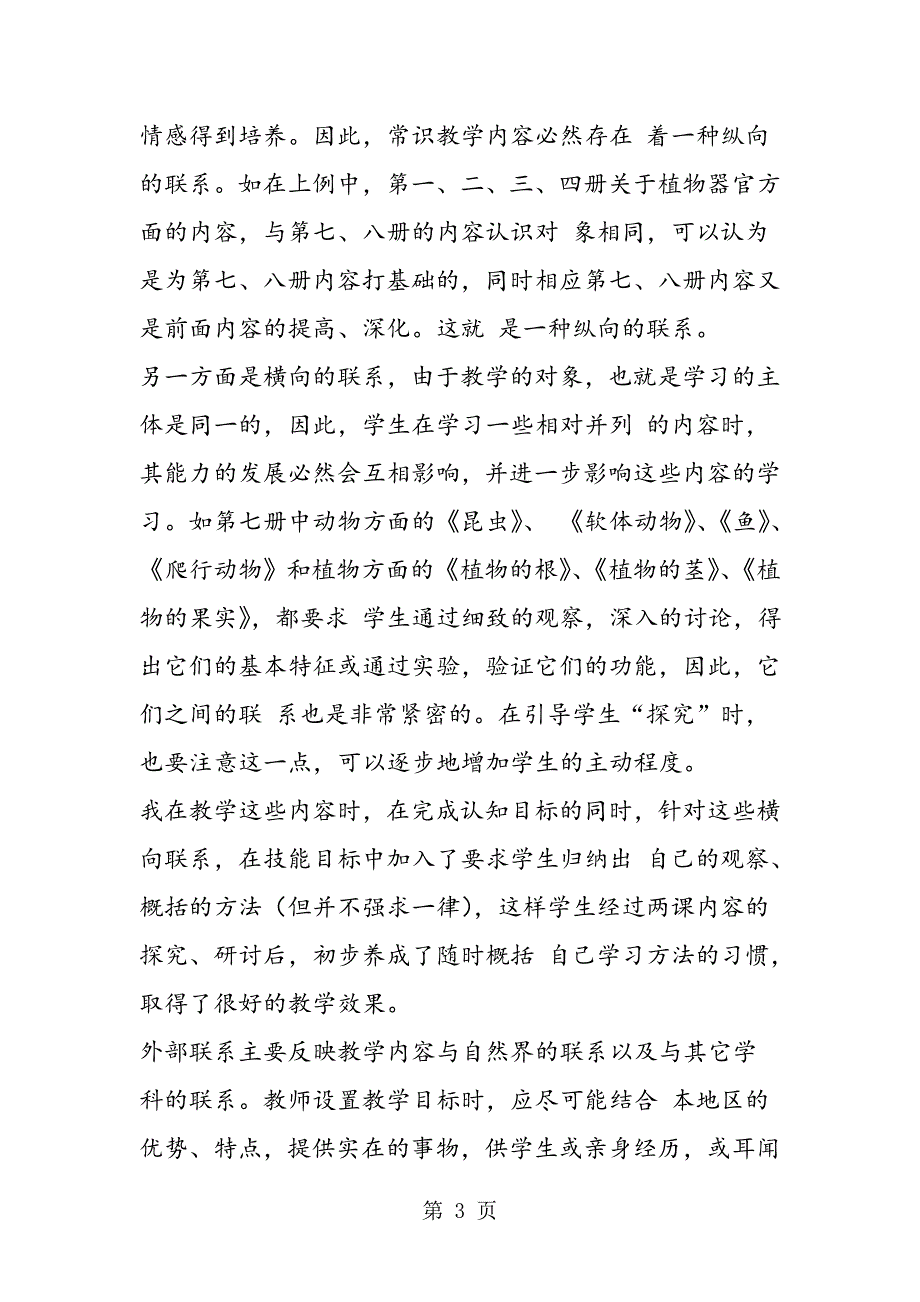 情感得到培养。因此，常识教学内容必然存在 着一种纵向
的联系。如在上例中，第一、二、三、四册关于植物器官方
面的内容，与第七、八册的内容认识对 象相同，可以认为
是为第七、八册内容打基础的，同时相应第七、八册内容又
是前面内容的提高、深化。这就 是一种纵向的联系。
另一方面是横向的联系，由于教学的对象，也就是学习的主
体是同一的，因此，学生在学习一些相对并列 的内容时，
其能力的发展必然会互相影响，并进一步影响这些内容的学
习。如第七册中动物方面的《昆虫》、 《软体动物》、《鱼》、
《爬行动物》和植物方面的《植物的根》、《植物的茎》、《植
物的果实》，都要求 学生通过细致的观察，深入的讨论，得
出它们的基本特征或通过实验，验证它们的功能，因此，它
们之间的联 系也是非常紧密的。在引导学生“探究”时，
也要注意这一点，可以逐步地增加学生的主动程度。
我在教学这些内容时，在完成认知目标的同时，针对这些横
向联系，在技能目标中加入了要求学生归纳出 自己的观察、
概括的方法（但并不强求一律），这样学生经过两课内容的
探究、研讨后，初步养成了随时概括 自己学习方法的习惯，
取得了很好的教学效果。
外部联系主要反映教学内容与自然界的联系以及与其它学
科的联系。教师设置教学目标时，应尽可能结合 本地区的
优势、特点，提供实在的事物，供学生或亲身经历，或耳闻
第 3 页